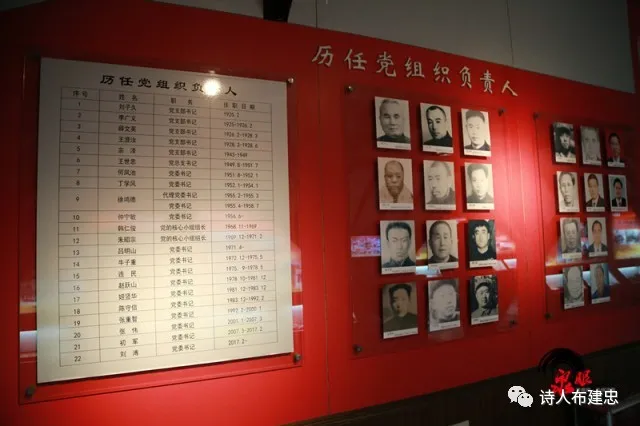 历任党组织负责人
历任党组织负责人
序号 姓名 职务 任职日期
1 刘子久 党支部书记 1925.2
2 李广义 党支部书记
3 薛文英 党支部书记
4 党支部书记
5 党支部书记 1945-1949
6 王世忠 党总支书记 1949.8-1951.7
7 何凤池 党委书记 1951.8-1952.1
8 丁学风 党委书记 1952.1-1954.1
9 徐鸣德 代理党委书记 1955.2-1955.3
党委书记 1955.4-1958.7
10 党委书记 1956.6-
11 韩仁俊 党的核心小组组长 1968.11-1969
12 党的核心小组组长
13 吕明山 党委书记 1971.6-
14 牛子重 党委书记 1972.12-1975.5
15 连民 党委书记 1975.9-1978.5
16 赵跃山 党委书记 1978.10-1981.12
17 党委书记 1981.12-1983.12
18 陈守信 党委书记 1983.12-1992.2
19 张重智 党委书记 1992.2-2020.1
20 张伟 党委书记 2007.1-2017.2
21 初军 党委书记 2007.3-2017.2
22 刘清 党委书记 2017.2-
诗人布建忠